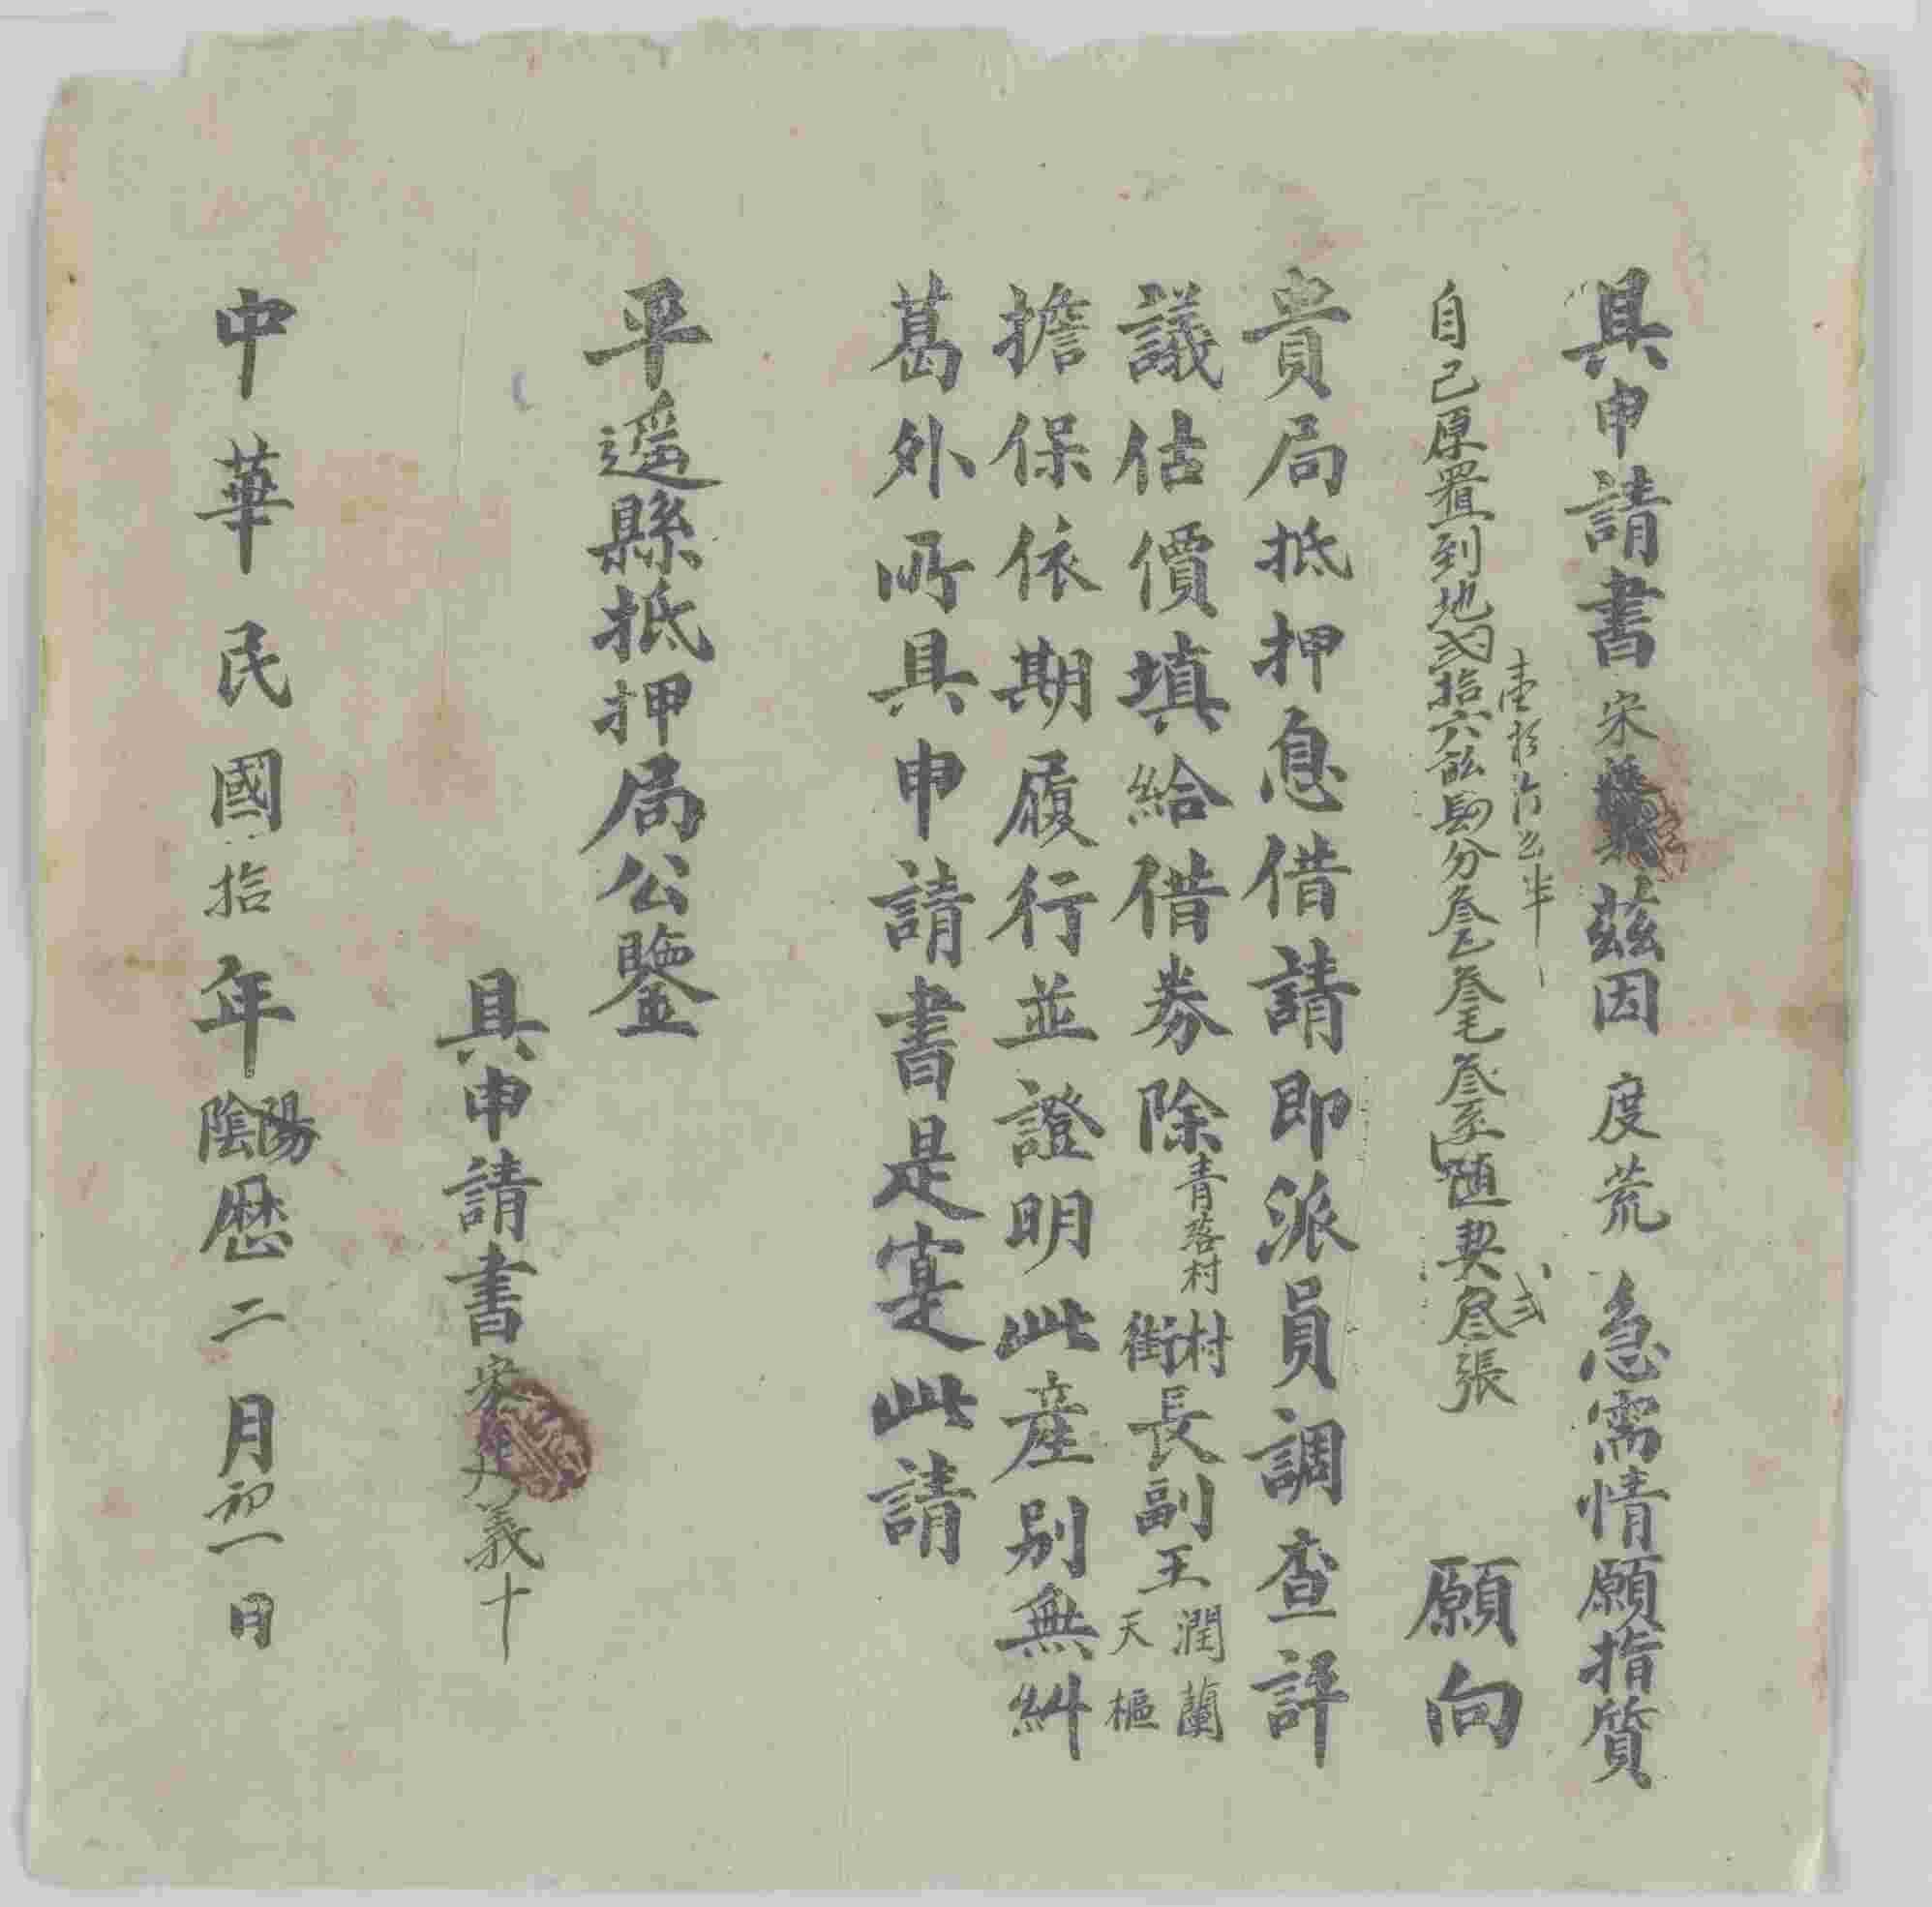 具申請書宋義茲因度荒急需情願指質
自己原置到地弍拾六畝四分叁厘叁毛叁系隨契叁張願向
貴局抵押息借請即派員調查評
議估價填給借券除青落村村街長副王潤蘭天樞
擔保依期履行並證明此産別無糾
葛外所具申請書是寔此請
平遥縣抵押局公鑒
具申請書宋廷義十
中華民國拾年陰陽歷二月初一日